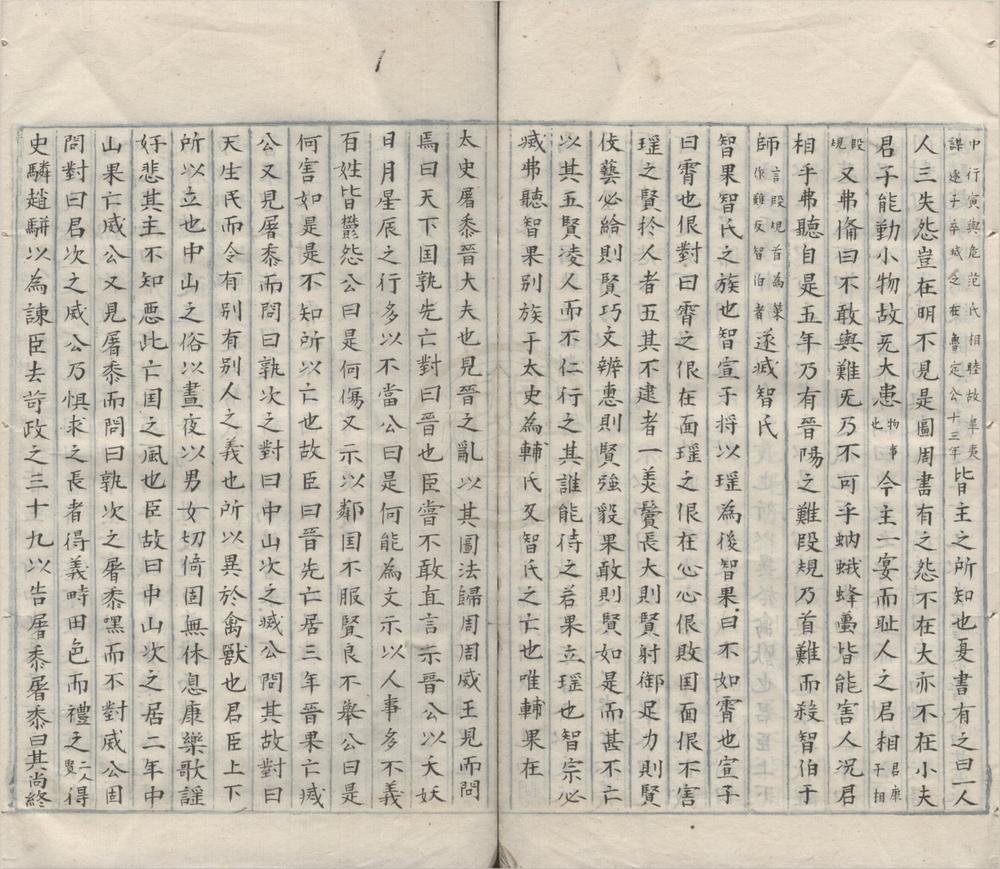 中行寅與危范氏相睦故皐夷謀逐子卒城之在魯定公十三年皆主之所知也夏書有之曰一人
人三失怨豈在明不見是圖周書有之怨不在大亦不在小夫
君子能勤小物故旡大患物事也今主一宴而耻人之君相君康子相
段規又弗備曰不敢興難旡乃不可乎蚋蛾蜂蠆皆能害人况君
相乎弗聽自是五年乃有晉陽之難段規乃首難而殺智伯于
師言段規首為策作難反智伯者遂㓕智氏
智果智氏之族也智宣子将以瑶為後智果曰不如霄也宣子
曰霄也佷對曰霄之佷在面瑶之佷在心心佷敗国面佷不害
瑶之賢扵人者五其不逮者一美鬢長大則賢射御足力則賢
伎藝必給則賢巧文辨惠則賢強毅果敢則賢如是而甚不亡
以其五賢凌人而不仁行之其誰能待之若果立瑶也智宗必
㓕弗聽智果别族于太史為輔氏及智氏之亡也唯輔果在
太史屠黍晉大夫也見晉之亂以其圖法歸周周威王見而問
焉曰天下国孰先亡對曰晉也臣嘗不敢直言示晉公以夭妖
日月星辰之行多以不當公曰是何能為文示以人事多不義
百姓皆鬱怨公曰是何傷又示以鄰国不服賢良不舉公曰是
何害如是是不知所以亡也故臣曰晉先亡居三年晉果亡㓕
公又見屠黍而問曰孰次之對曰中山次之㓕公問其故對曰
天生民而令有别有别人之義也所以異於禽獸也君臣上下
所以立也中山之俗以晝夜以男女切倚固無休息康樂歌謡
好悲其主不知惡此亡国之風也臣故曰中山次之居二年中
山果亡威公又見屠黍而問曰孰次之屠黍嘿而不對威公固
問對曰君次之威公乃惧求之長者得義畤田色而禮之二人賢得
史驎趙駢以為諫臣去苛政之三十九以告屠黍屠黍曰其尚終